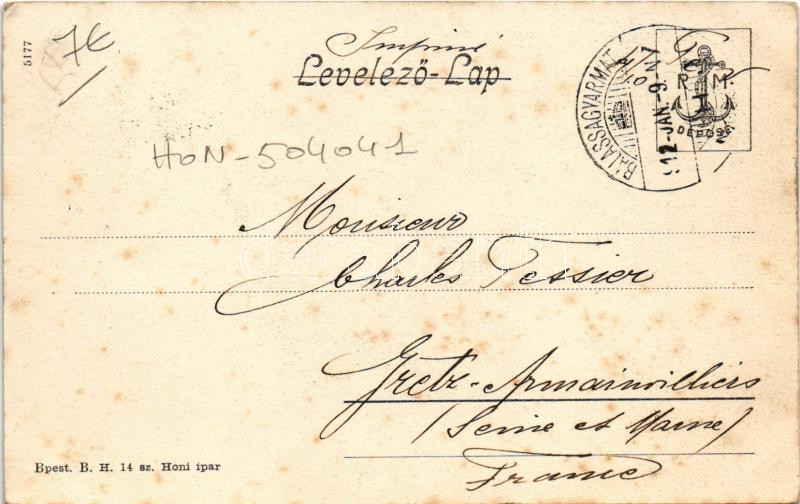 5177
7€
Imprimé
Levelező-Lap
BALASSAGYARMAT
912 -JAN.-9.-N7
R. M.
DEPOSE
HON-504041
Monsieur
Charles Tessier
Gretz-Armainvilliers
(Seine et Marne)
France
Bpest. B. H. 14 sz. Honi ipar